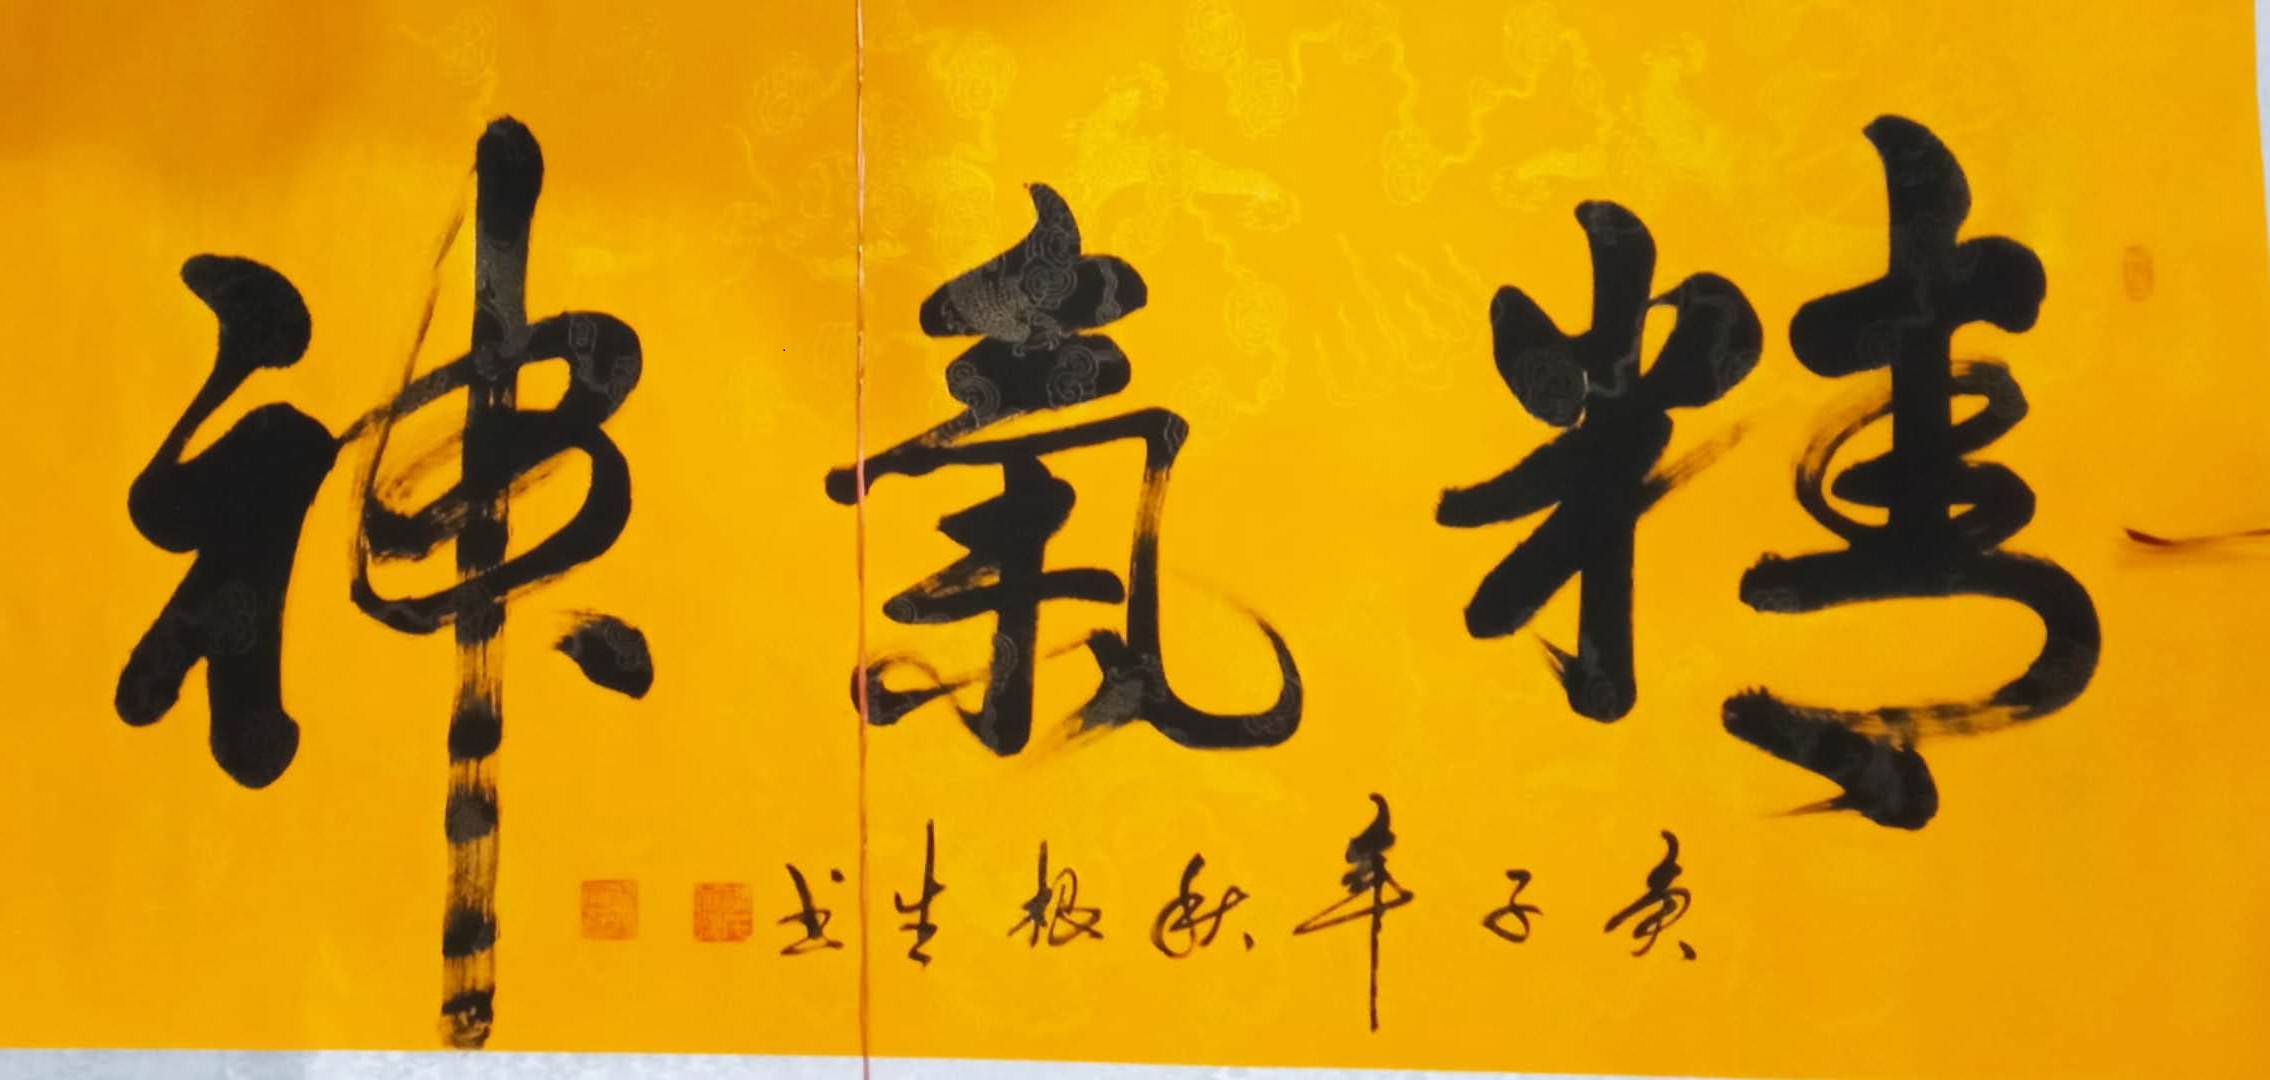 精氣神
庚子年秋根生书